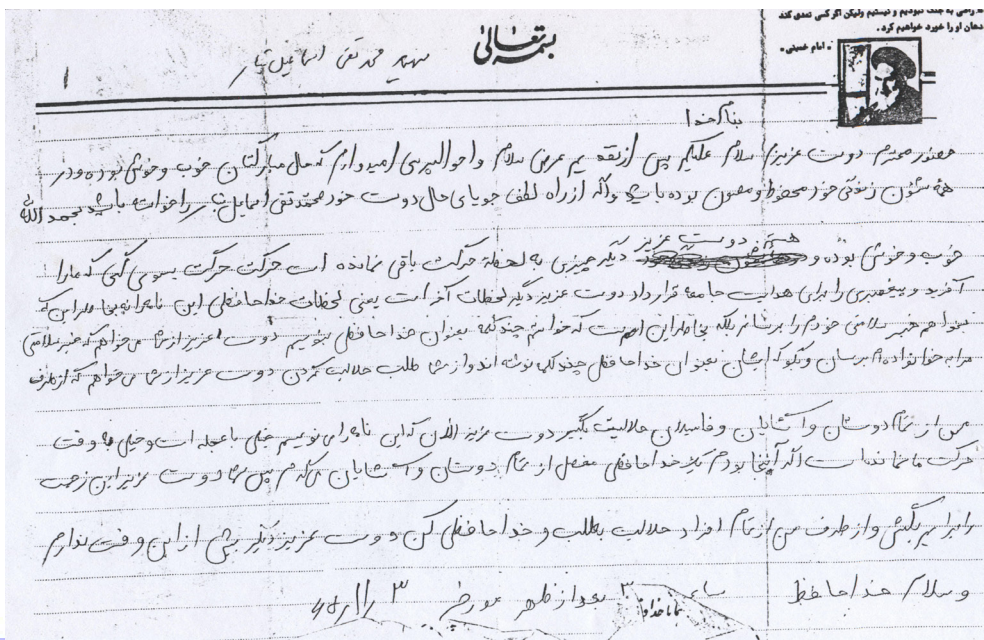 راضی به جنگ نبودیم و نیستیم ولیکن اگر کسی تعدی کند
دهان او را خورد خواهیم کرد.
« امام خمینی »
بسمه تعالی
شهید محمد تقی اسماعیل تبار
۱
بنام خدا
حضور محترم دوست عزیزم سلام علیکم پس از تقدیم عرض سلام و احوالپرسی امیدوارم که حال مبارکتان خوب و خوش بوده و در
همه شئون زندگی خود محفوظ و مصون بوده باشید و اگر از راه لطف جویای حال دوست خود محمد تقی اسمایل تبار را خواسته باشید بحمد الله
خوب و خوش بوده و هستم دوست عزیز دیگر چیزی به لحظه حرکت باقی نمانده است حرکت حرکت بسوی کسی که ما را
آفرید و پیغمبری را برای هدایت جامعه قرار داد دوست عزیز دیگر لحظات آخر است یعنی لحظات خداحافظی این نامه را نه بخاطر این که
خبر سلامتی خودم را برسانم بلکه بخاطر این است که خواستم چند کلمه بعنوان خداحافظی بنویسم دوست عزیز از شما می خواهم که خبر سلامتی
مرا به خانواده ام برسان و بگو که ایشان بعنوان خداحافظی چند کلمه نوشته اند و از شما طلب حلالیت کردن دوست عزیز از شما می خواهم که از طرف
من از تمام دوستان و آشنایان و فامیلان حلالیت بگیر دوست عزیز الان که این نامه را می نویسم خیلی با عجله است و خیلی به وقت
حرکت ما نمانده است اگر آنجا بودم یک خداحافظی مفصل از تمام دوستان و آشنایان می کردم پس شما دوست عزیز این زحمت
را برایم بکش و از طرف من از تمام افراد حلالیت بطلب و خداحافظی کن دوست عزیز دیگر بیش از این وقت ندارم
و سلام خداحافظ ساعت ۳ بعد از ظهر مورخ ۳